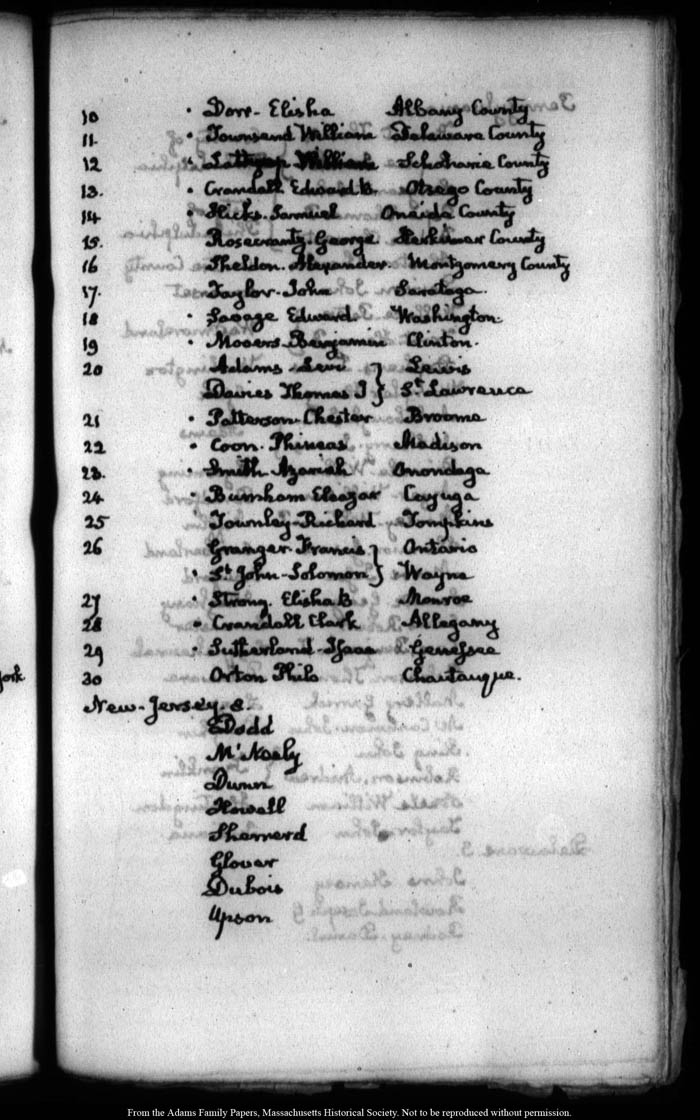 10 · Dorr - Elisha Albany County
11. · Townsend William Delaware County
12 · Lathrop William Schoharie County
13. · Crandall Edward B. Otsego County
14. · Hicks. Samuel Oneida County
15. Rosecrantz George Herkimer County
16 · Sheldon. Alexander. Montgomery County
17. · Taylor. John Saratoga.
18 · Savage Edward. Washington.
19 · Mooers. Benjamin Clinton.
20 Adams - Levi } Lewis
Davies Thomas J } St. Lawrence
21 · Patterson. Chester Broome
22 · Coon. Phineas Madison
23. · Smith. Azariah Onondaga
24 · Burnham Eleazar Cayuga
25 Townley - Richard Tompkins
26 Granger. Francis } Ontario
· St. John - Solomon } Wayne
27 · Strong. Elisha B Monroe
28 · Crandall Clark Allegany
29 · Sutherland - Isaac Genessee
30 Orton Philo Chautauque.
ork
New-Jersey. 8.
Dodd
McNeely
Dunn
Howell
Sherrerd
Glover
Dubois
Upson
From the Adams Family Papers, Massachusetts Historical Society. Not to be reproduced without permission.